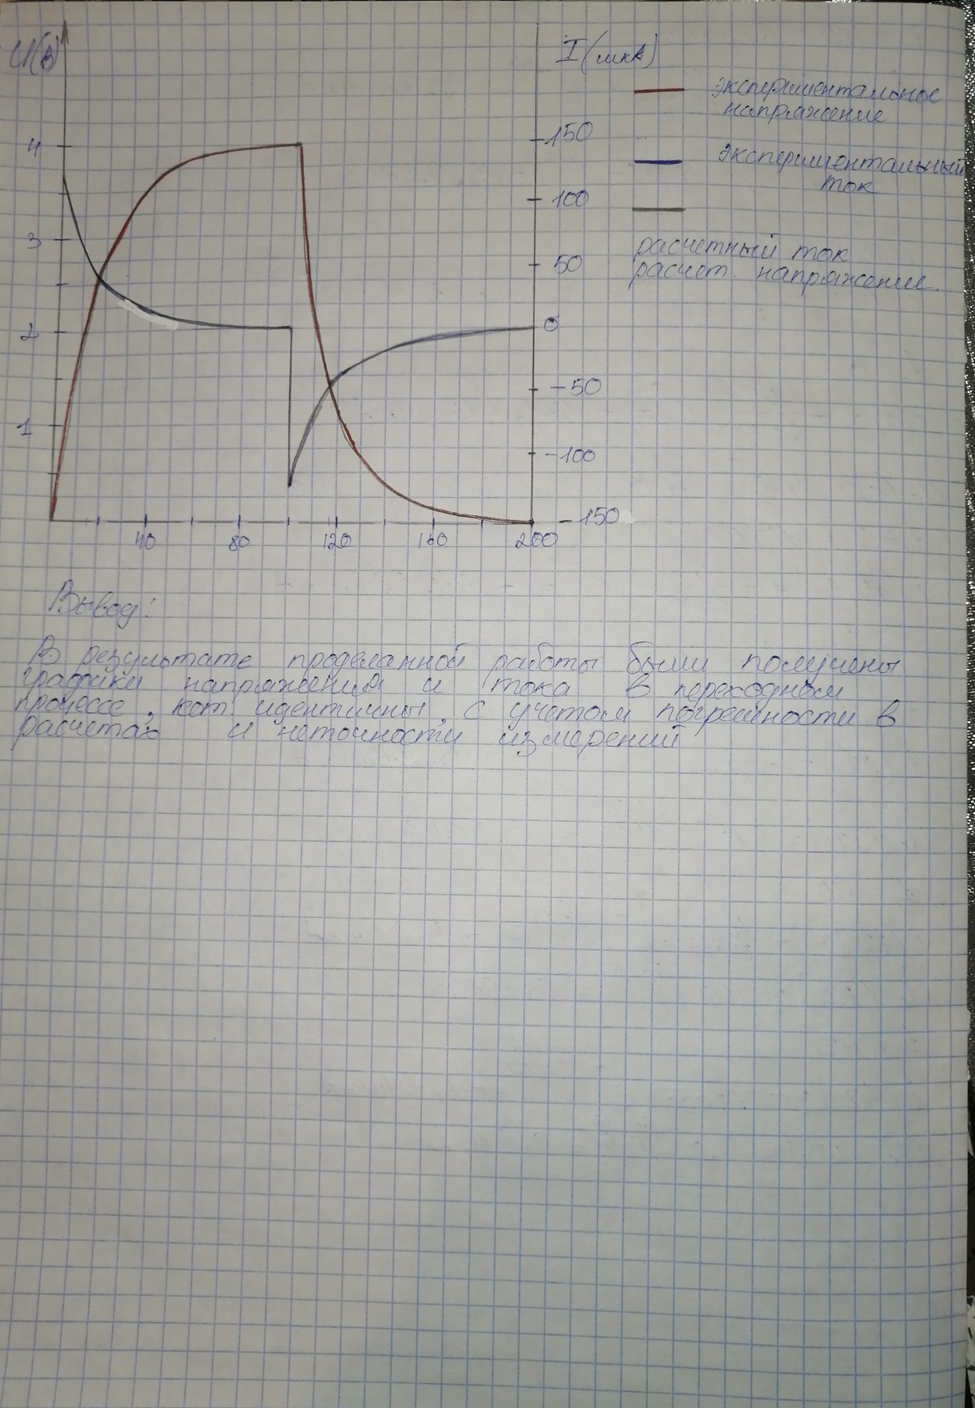 U(В)
I(мкА)
экспериментальное
напряжение
экспериментальный
ток
расчетный ток
расчет напряжение.
4
3
2
1
150
100
50
0
-50
-100
-150
40 80 120 160 200
Вывод:
В результате проделанной работы были получены
графики напряжения и тока в переходном
процессе, кот идентичны, с учетом погрешности в
расчетах и неточности измерений